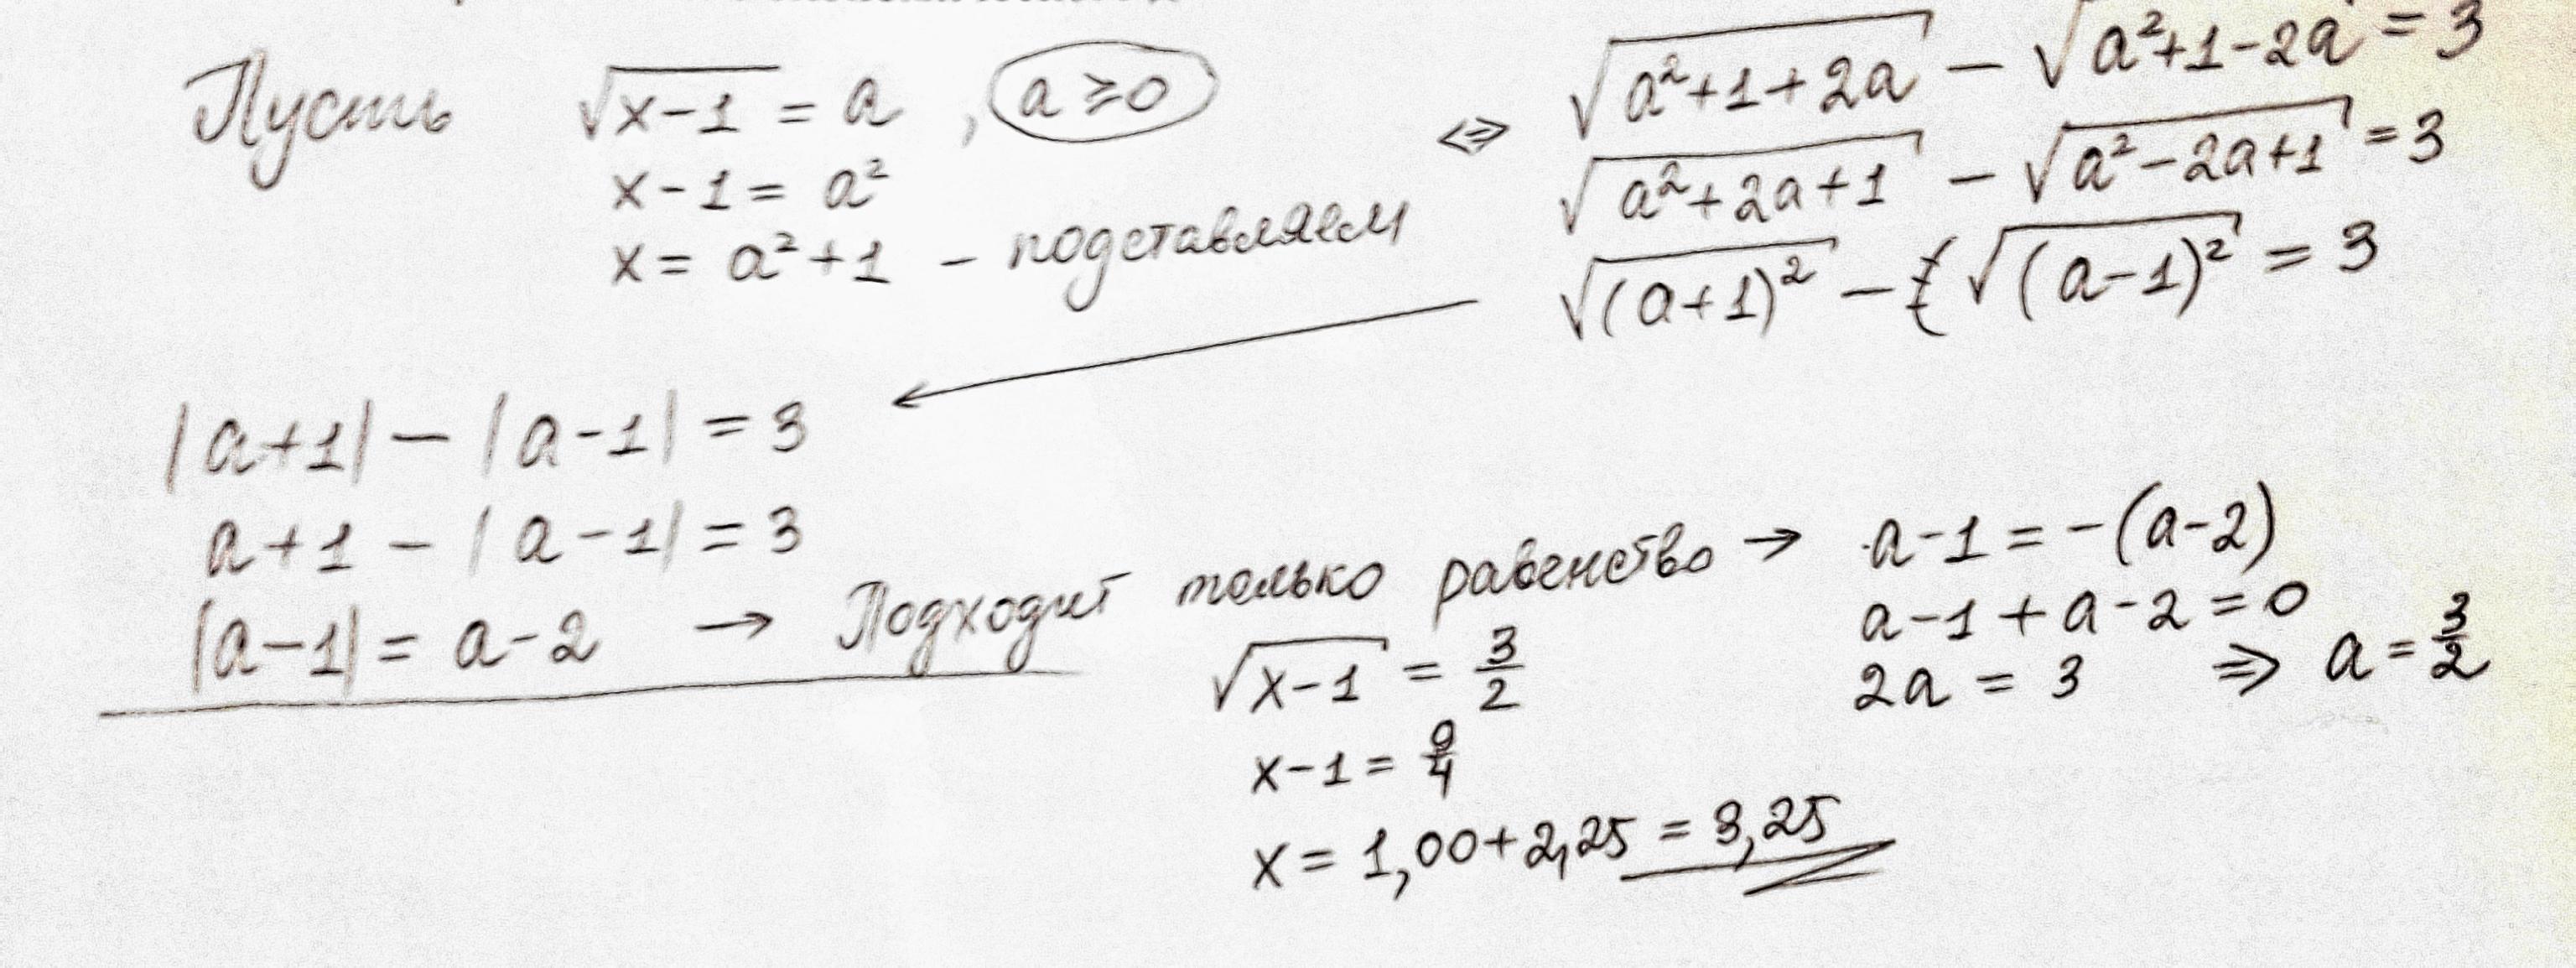 Пусть √(x-1) = a , a ≥ 0
x-1 = a²
x = a²+1 - подставляем
⇔ √(a²+1+2a) - √(a²+1-2a) = 3
√(a²+2a+1) - √(a²-2a+1) = 3
√((a+1)²) - √((a-1)²) = 3
|a+1| - |a-1| = 3
a+1 - |a-1| = 3
|a-1| = a-2 → Подходит только равенство → a-1 = -(a-2)
a-1+a-2=0
2a = 3 ⇒ a = 3/2
√(x-1) = 3/2
x-1 = 9/4
x = 1,00+2,25 = 3,25